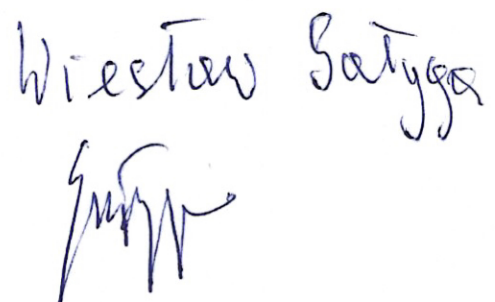 Wiesław Gałyga